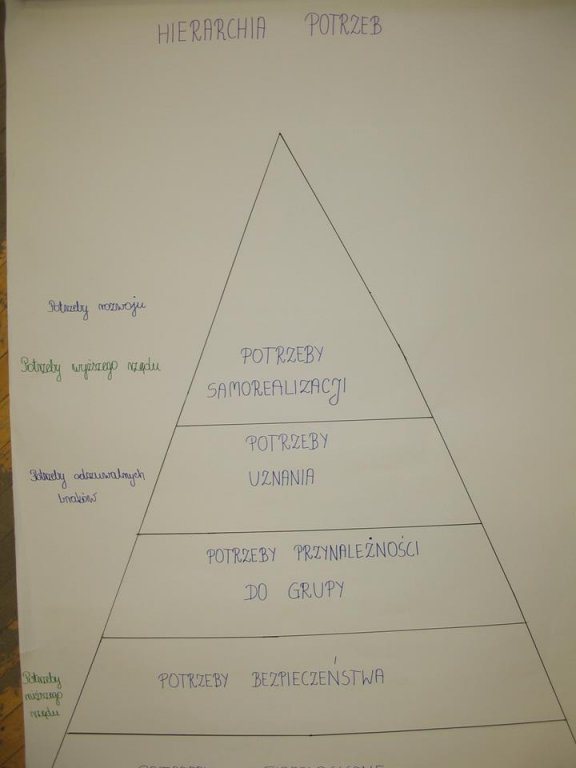 HIERARCHIA POTRZEB
Potrzeby rozwoju
Potrzeby wyższego rzędu
POTRZEBY
SAMOREALIZACJI
POTRZEBY
UZNANIA
Potrzeby odczuwalnych
braków
POTRZEBY PRZYNALEŻNOŚCI
DO GRUPY
POTRZEBY BEZPIECZEŃSTWA
Potrzeby
niższego
rzędu